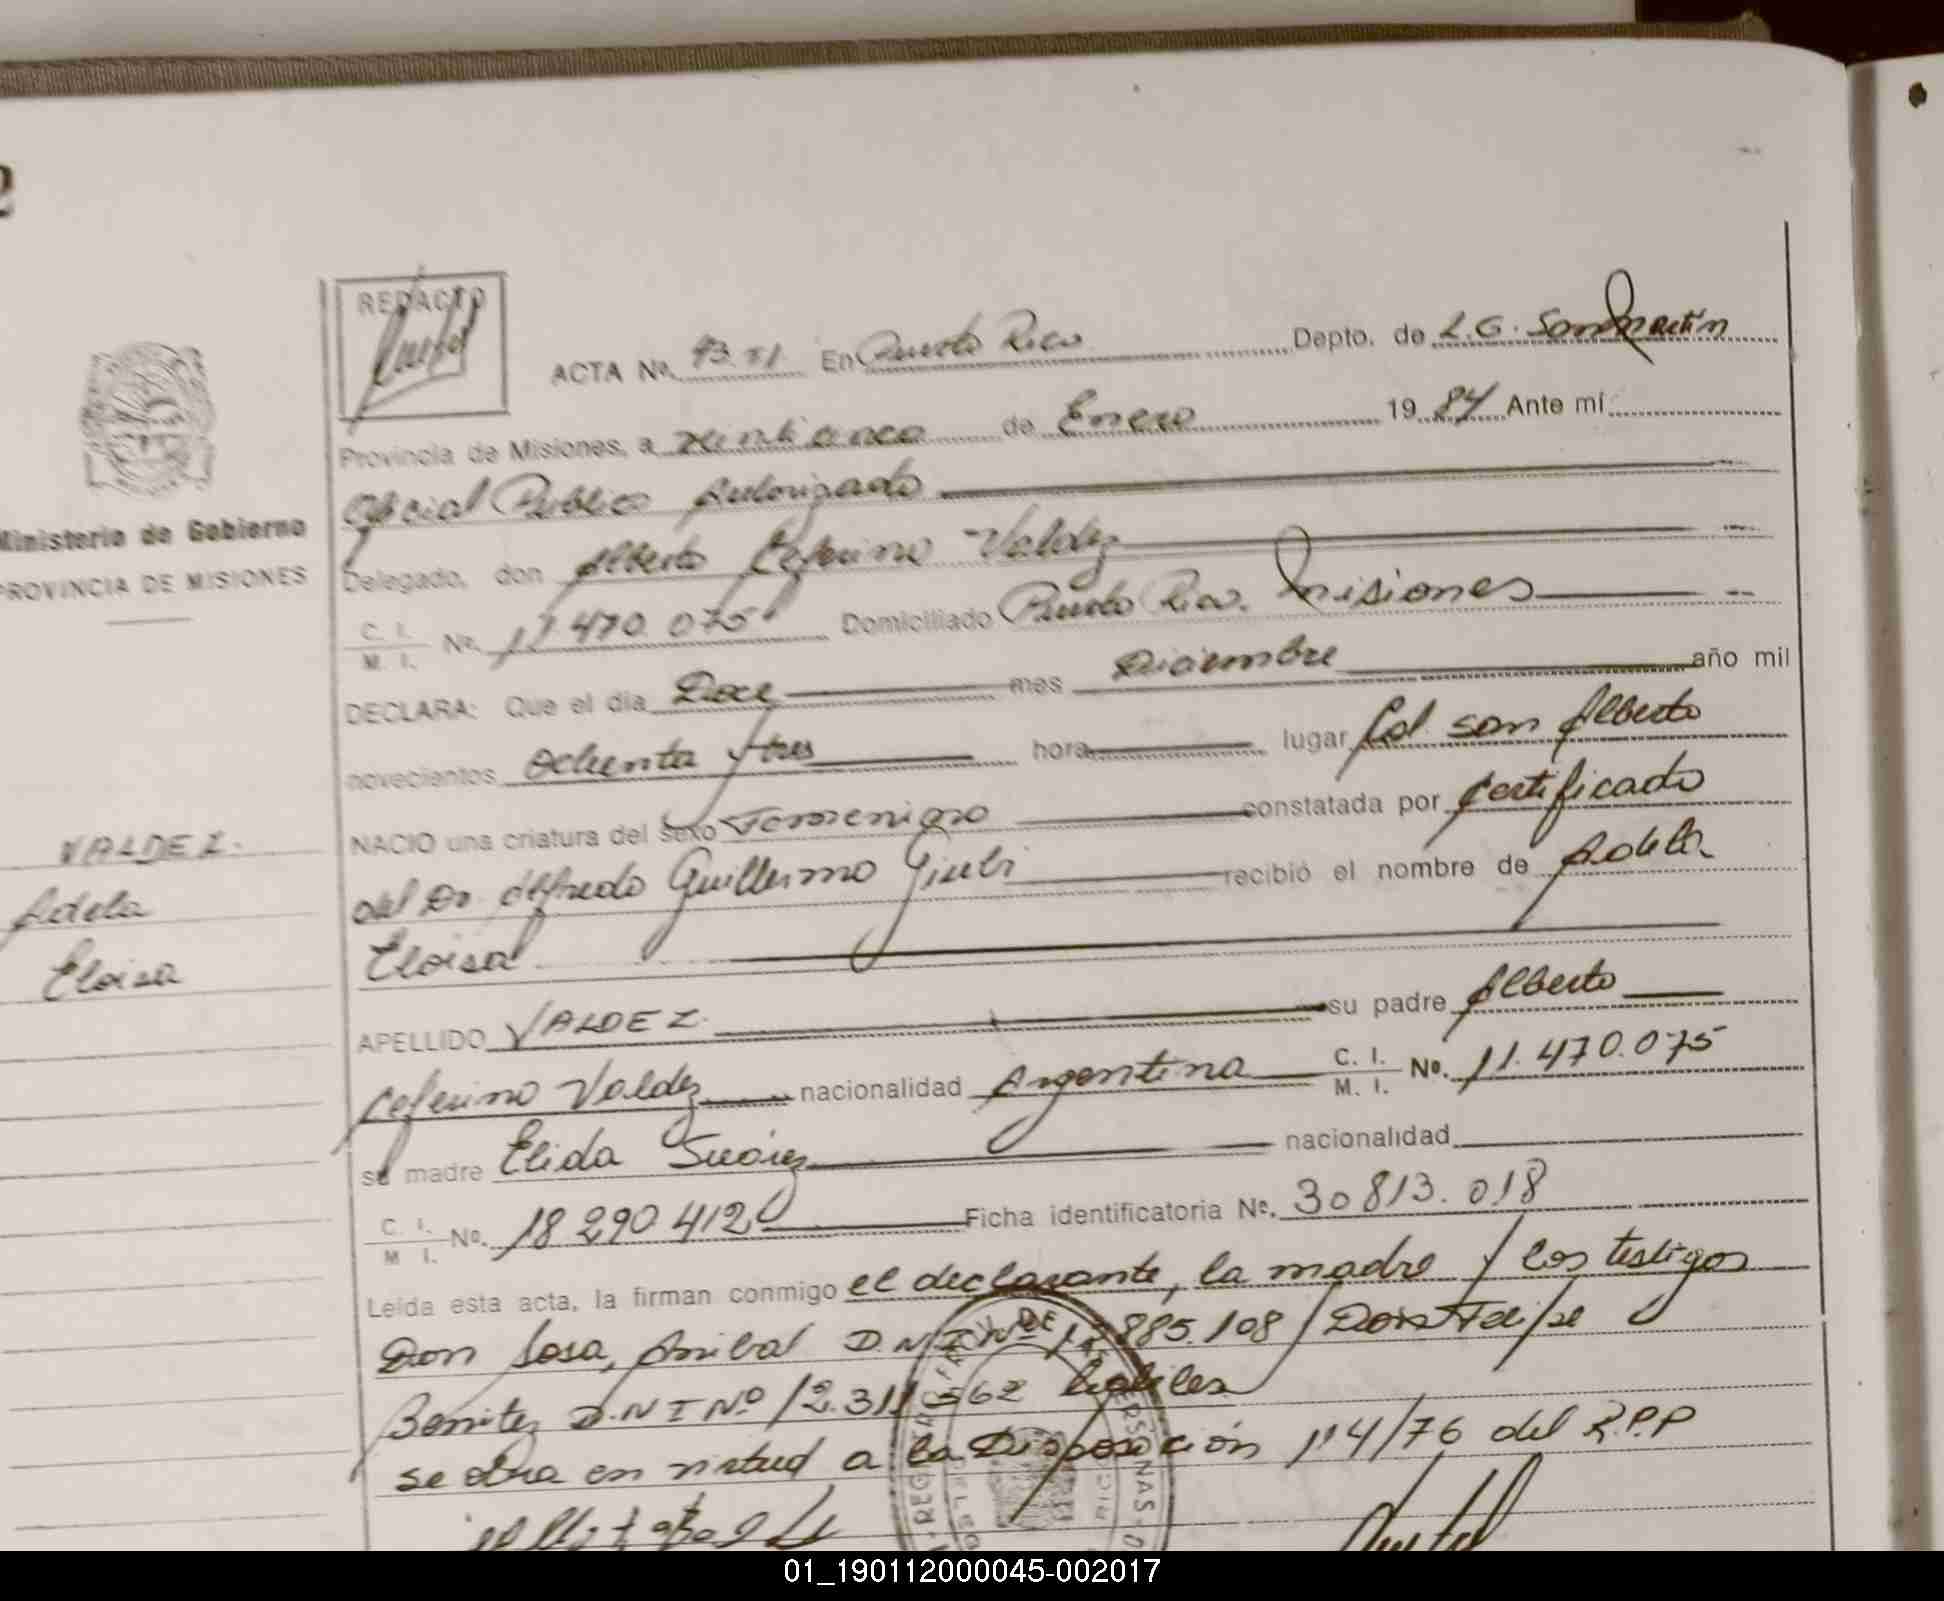 2
REDACTO
ACTA Nº. 93.TI. En Puerto Rico Depto. de L.G. San Martín
Provincia de Misiones, a veinticinco de Enero 19 84 Ante mí
Oficial Publico Autorizado
Ministerio de Gobierno
PROVINCIA DE MISIONES
Delegado, don Alberto Ceferino Valdez
C. I. M. I. Nº. 11.470.075 Domiciliado Puerto Rico. Misiones
DECLARA: Que el día Doce mes Diciembre año mil
novecientos ochenta y tres hora lugar Col. San Alberto
NACIO una criatura del sexo Femenino constatada por certificado
VALDEZ.
del Dr. Alfredo Guillermo recibió el nombre de Adela
Adela
Eloisa
Eloisa
APELLIDO VALDEZ. su padre Alberto
Ceferino Valdez nacionalidad Argentina C. I. M. I. Nº. 11.470.075
su madre Elida Suárez nacionalidad
C. I. M I. Nº. 18 290.412 Ficha identificatoria Nº. 30813.018
Leída esta acta, la firman conmigo el declarante, la madre y los testigos
Don Sosa, Anibal D.N.I Nº 885.108 y Don Felipe
Benitez D.N I Nº 12.311 562 habiles
se obra en virtud a la Disposición 114/76 del R.P.P
01_190112000045-002017